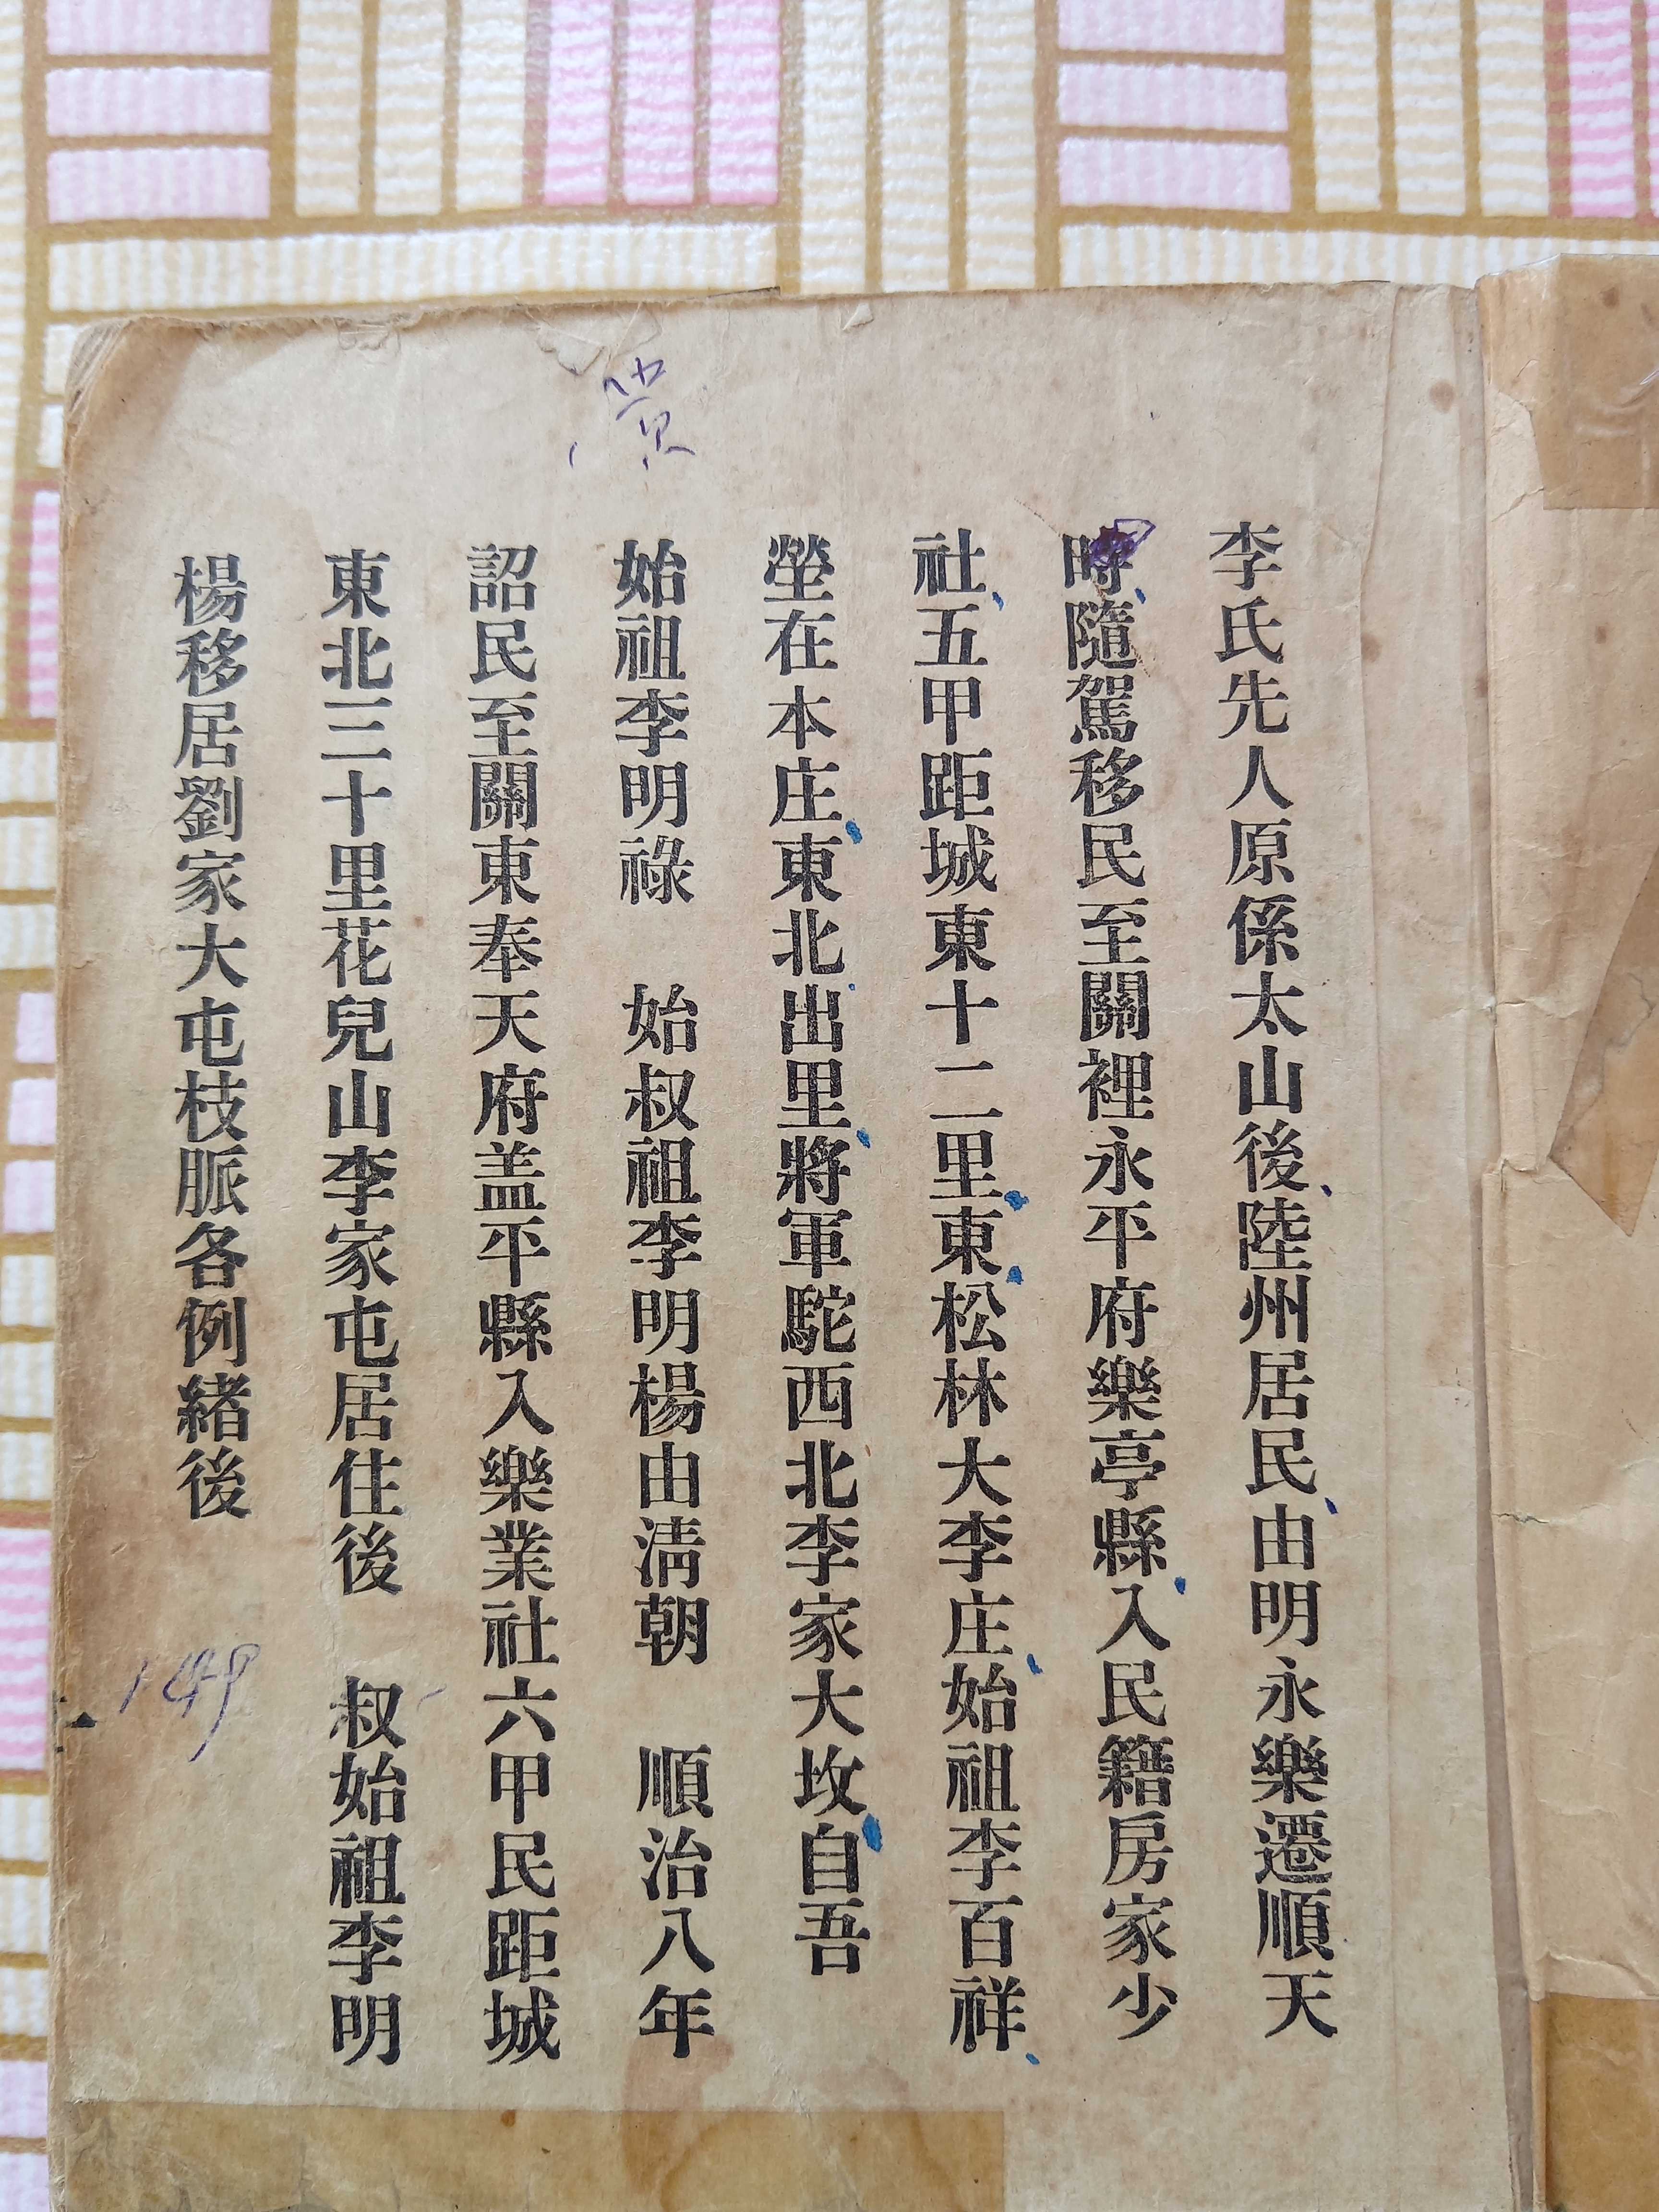 李氏先人原係太山後陸州居民由明永樂遷順天
時隨駕移民至關裡永平府樂亭縣入民籍房家少
社五甲距城東十二里東松林大李庄始祖李百祥
塋在本庄東北出里將軍駝西北李家大坟自吾
始祖李明祿　始叔祖李明楊由淸朝　順治八年
詔民至關東奉天府盖平縣入樂業社六甲民距城
東北三十里花兒山李家屯居住後　叔始祖李明
楊移居劉家大屯枝脈各例緒後
149